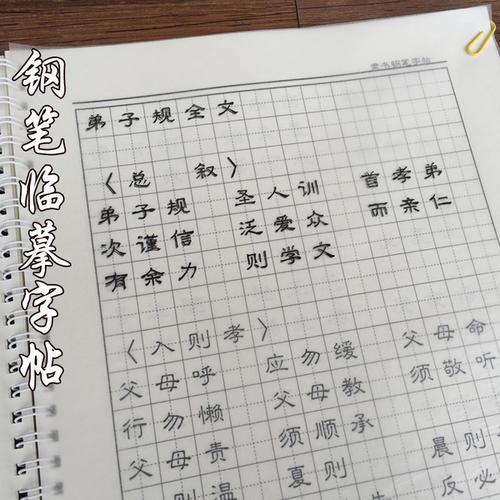 钢笔临摹字帖
隶书钢笔字帖
弟子规全文
〈总 叙〉
弟子规 圣人训 首孝弟
次谨信 泛爱众 而亲仁
有余力 则学文
〈入则孝〉
父母呼 应勿缓 父母命
行勿懒 父母教 须敬听
父母责 须顺承
则温 夏则 晨则
反必